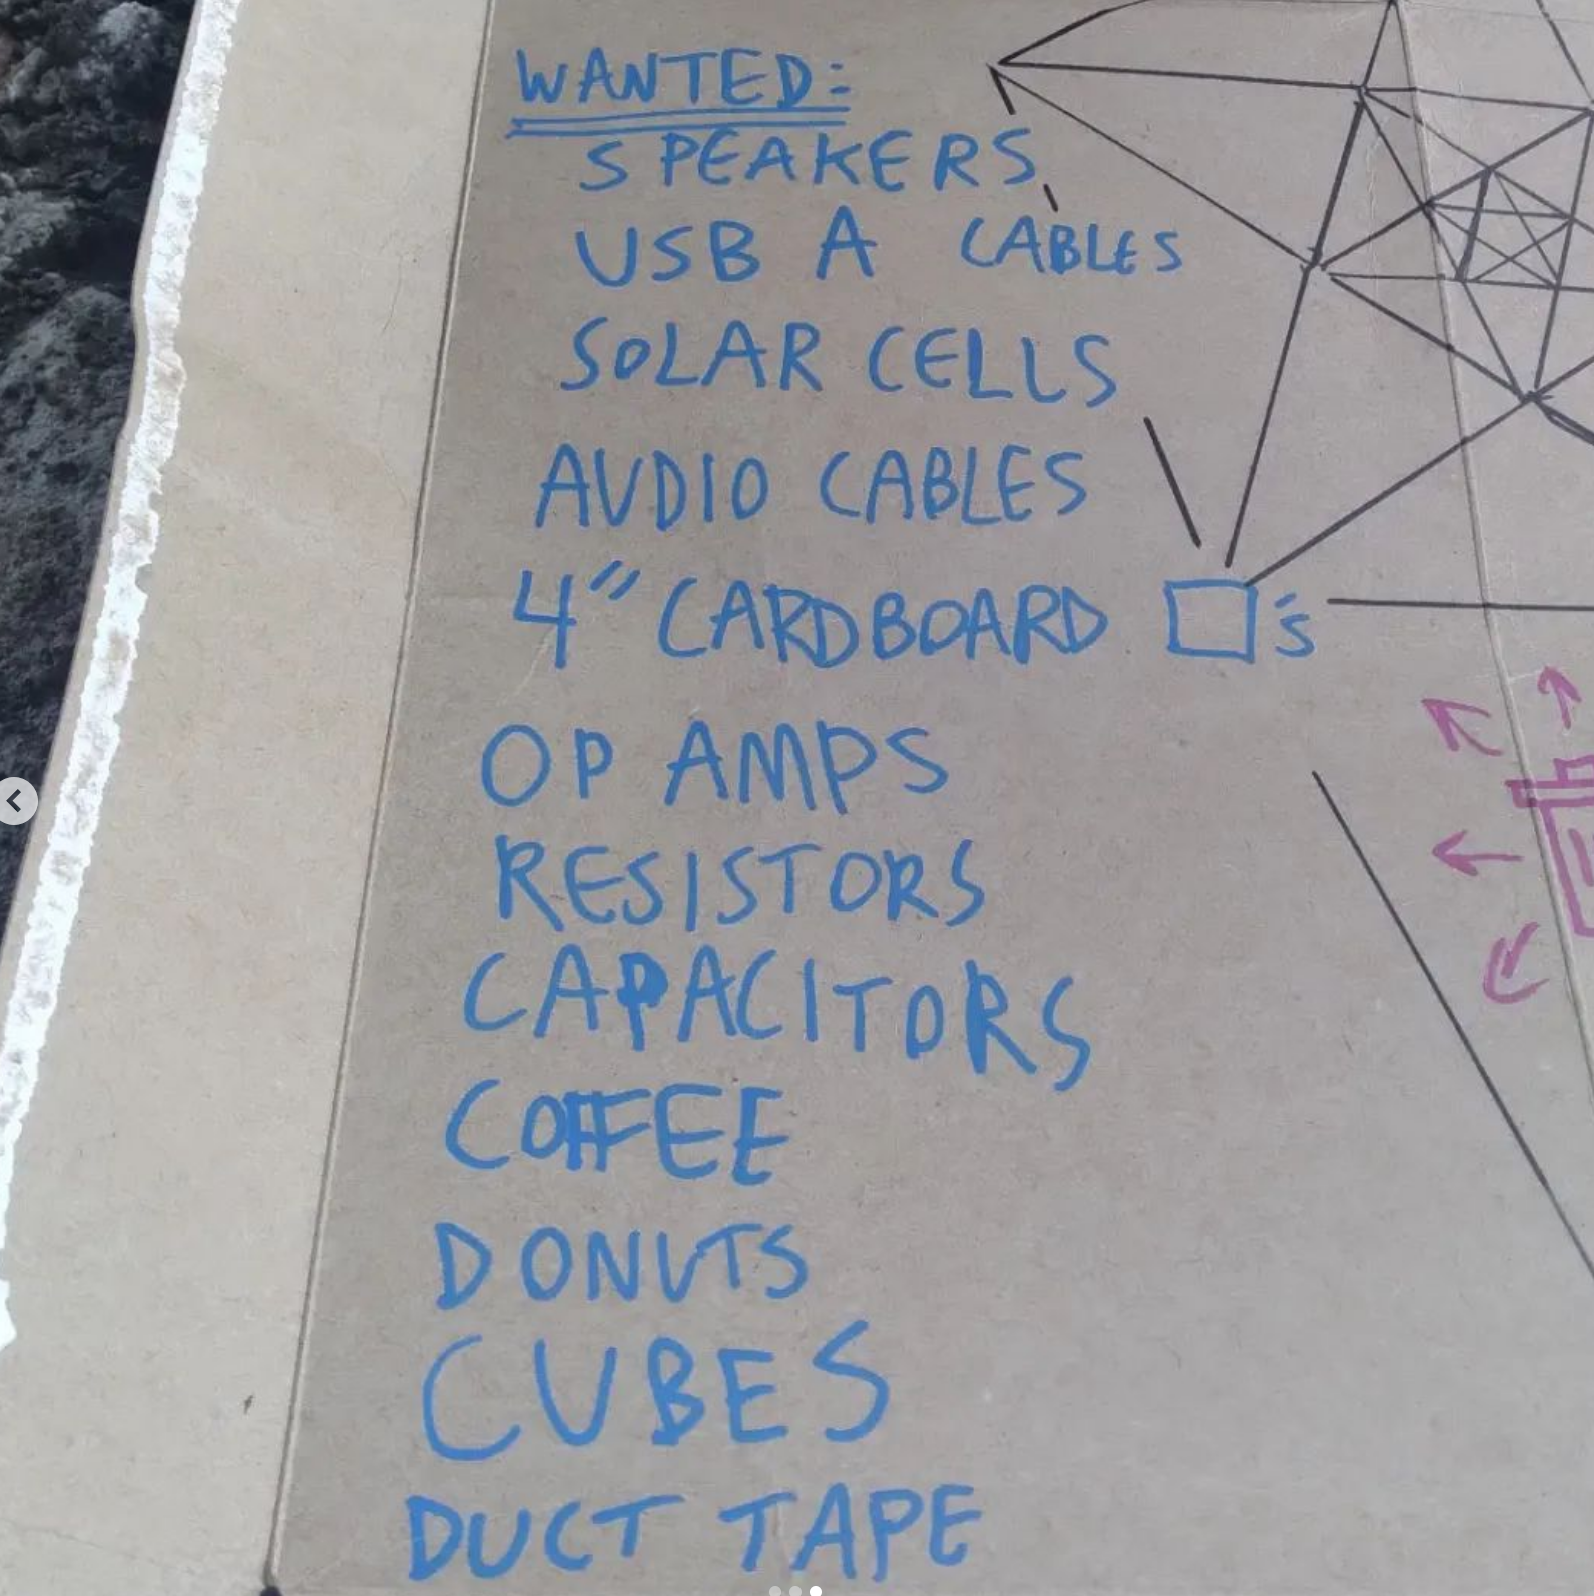 WANTED:
SPEAKERS
USB A CABLES
SOLAR CELLS
AUDIO CABLES
4" CARDBOARD □'s
OP AMPS
RESISTORS
CAPACITORS
COFFEE
DONUTS
CUBES
DUCT TAPE